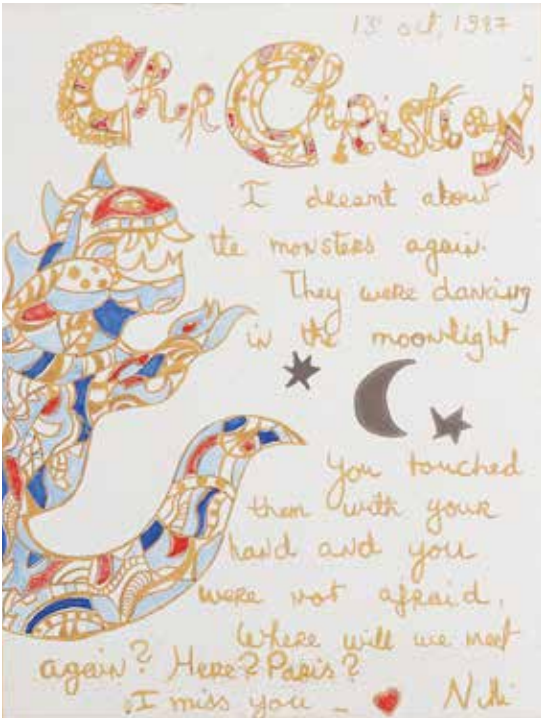 13 oct, 1987
Cher Christian,
I dreamt about
the monsters again.
They were dancing
in the moonlight
You touched
them with your
hand and you
were not afraid.
Where will we meet
again? Here? Paris?
I miss you _ Niki